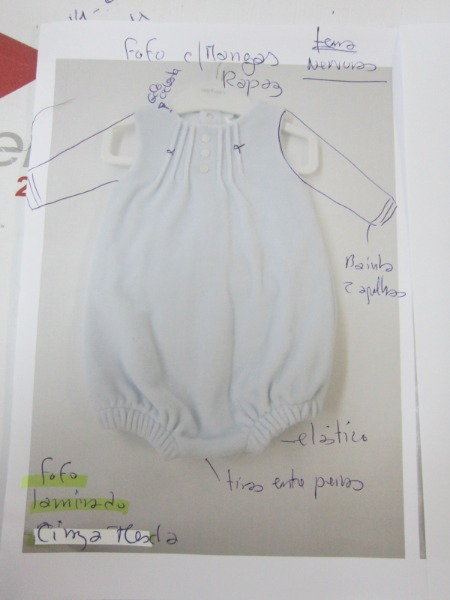 fofo c/Mangas
Rapaz
tema
Nervuras
Bainha
2 agulhas
elástico
tiras entre pernas
fofo
laminado
Cinza Mescla